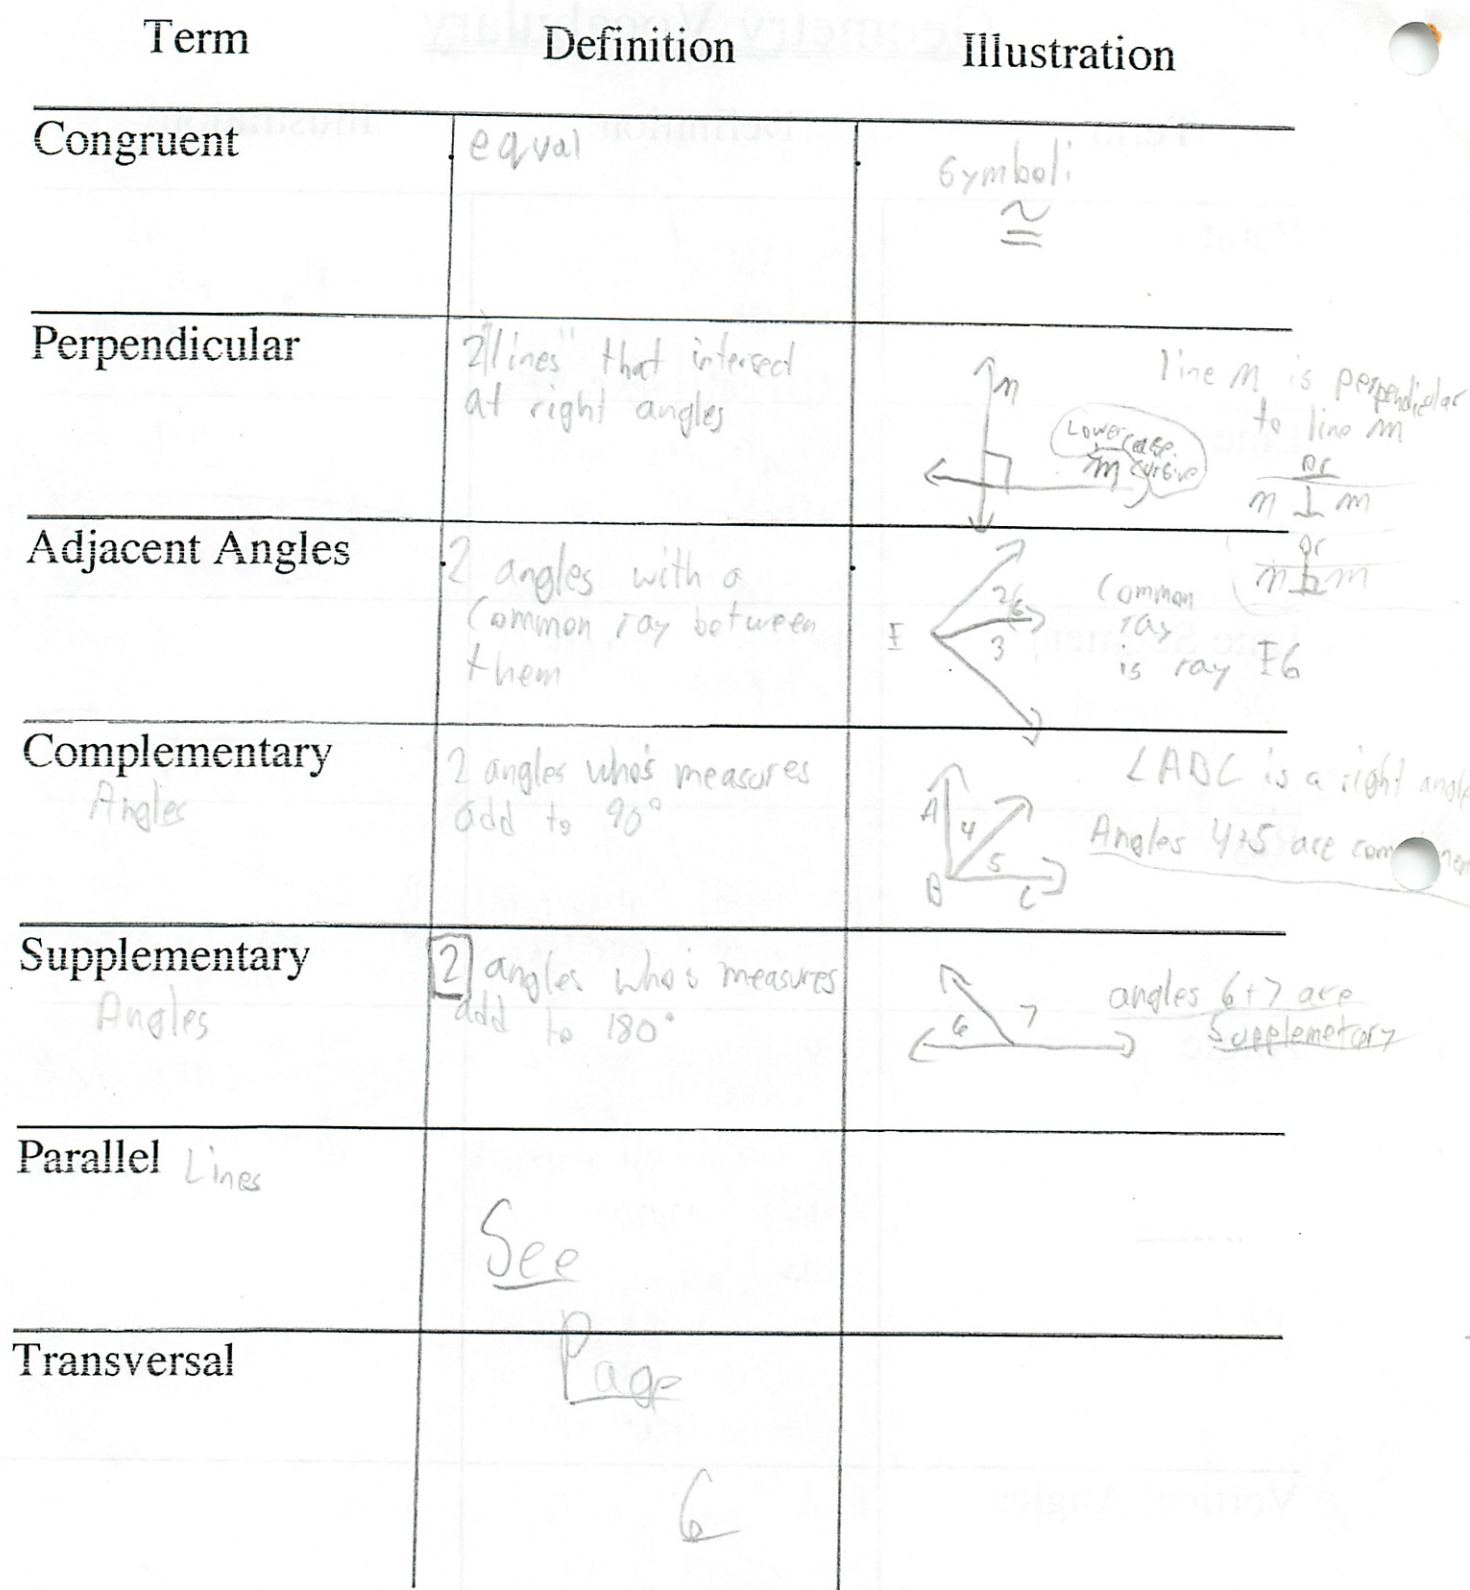 Term Definition Illustration
Congruent
equal
Symbol:
≅
Perpendicular
2 "lines" that intersect
at right angles
n
Lower
case
cursive
m
line n is perpendicular
to line m
or
n ⊥ m
or
n ⊥ m
Adjacent Angles
2 angles with a
common ray between
them
F
2
G
3
Common
ray
is ray FG
Complementary
Angles
2 angles who's measures
add to 90°
A
4
5
B
C
∠ABC is a right angle
Angles 4+5 are
Supplementary
Angles
2 angles who's measures
add to 180°
6
7
angles 6+7 are
Supplemetary
Parallel Lines
See
Transversal
Page
6